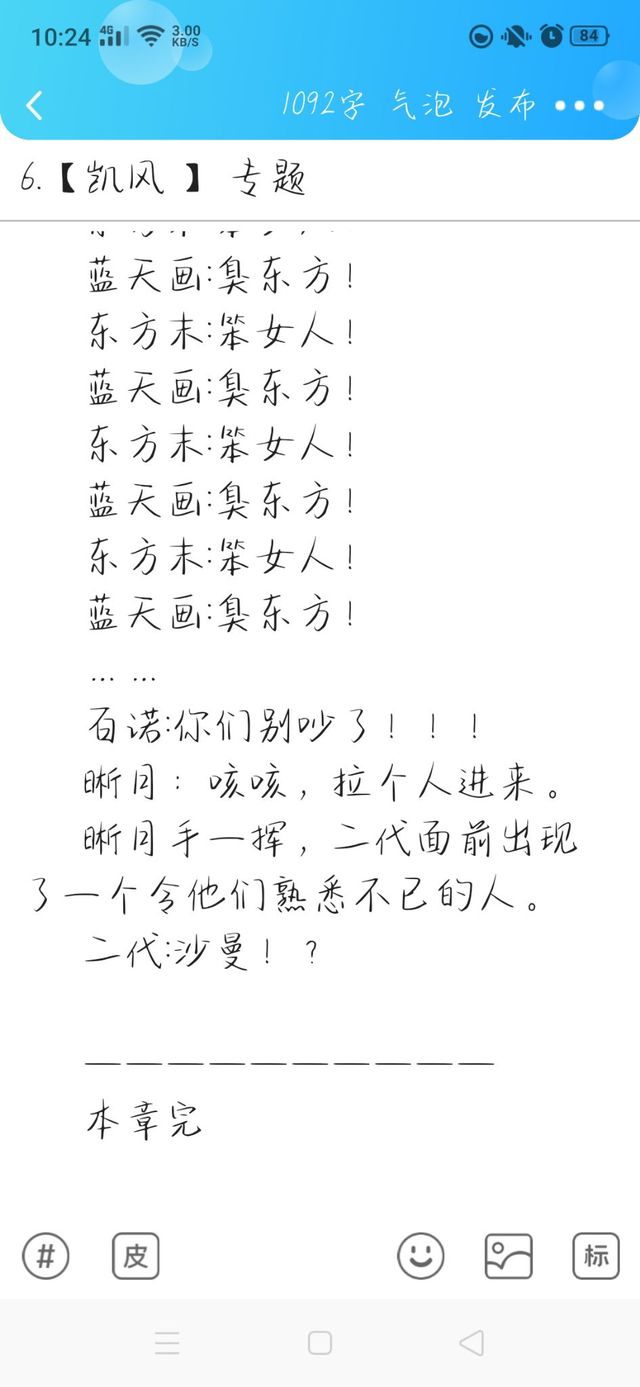 10:24 4G 3.00 KB/S 84
1092字 气泡 发布
6.【凯风 】 专题
蓝天画:臭东方!
东方末:笨女人!
蓝天画:臭东方!
东方末:笨女人!
蓝天画:臭东方!
东方末:笨女人!
蓝天画:臭东方!
... ...
百诺:你们别吵了! ! !
晰月: 咳咳, 拉个人进来。
晰月手一挥, 二代面前出现
了一个令他们熟悉不已的人。
二代:沙曼! ?
——————————
本章完
# 皮 标